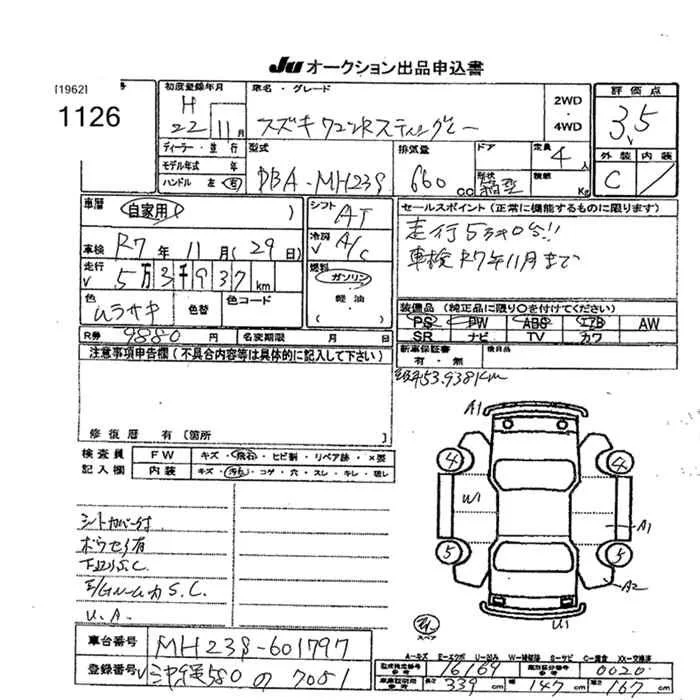 JU オークション出品申込書
[1962] 号
1126
初度登録年月
H
22年 11月
車名・グレード
スズキ ワゴンR スティングレー
2WD
4WD
評価点
3.5
ディーラー・並行
モデル年式 年
ハンドル 左 右
型式
DBA-MH23S
排気量
660 C.C
ドア
定員
4人
形状
箱型
積載
Kg
外装 内装
C
車歴
自家用
シフト
AT
セールスポイント(正常に機能するものに限ります)
走行5万キロ台!!
車検R7年11月まで
車検 R7年 11月(29日)
冷房
A/C
走行
5万3千937km
燃料
ガソリン
軽油
色
ムラサキ
色替
色コード
装備品(純正品に限り○を付けてください)
PS PW ABS エアB AW
SR ナビ TV カワ
R券 9880円
名変期限 月 日
新車保証書
有・無
後日品
注意事項申告欄(不具合内容等は具体的に記入して下さい)
53,938Km
修復歴 有 [箇所 ]
検査員
記入欄
FW
キズ・飛石・ヒビ割・リペア跡・X要
内装
キズ・汚れ・コゲ・穴・スレ・キレ・破レ
A1
4
4
W1
A1
5
5
A2
U1
スペア
シートカバー付
下廻りS.C.
E/Gルーム内S.C.
U.A
車台番号
MH23S-601797
登録番号
580 の 7051
A-キズ E-エクボ U-凹み W-補修跡 S-サビ C-腐食 XX-交換済
型式指定番号
参考
16169
類別区分番号
参考
0020
車庫証明用
参考
長さ 339cm
幅 147cm
高さ 167cm